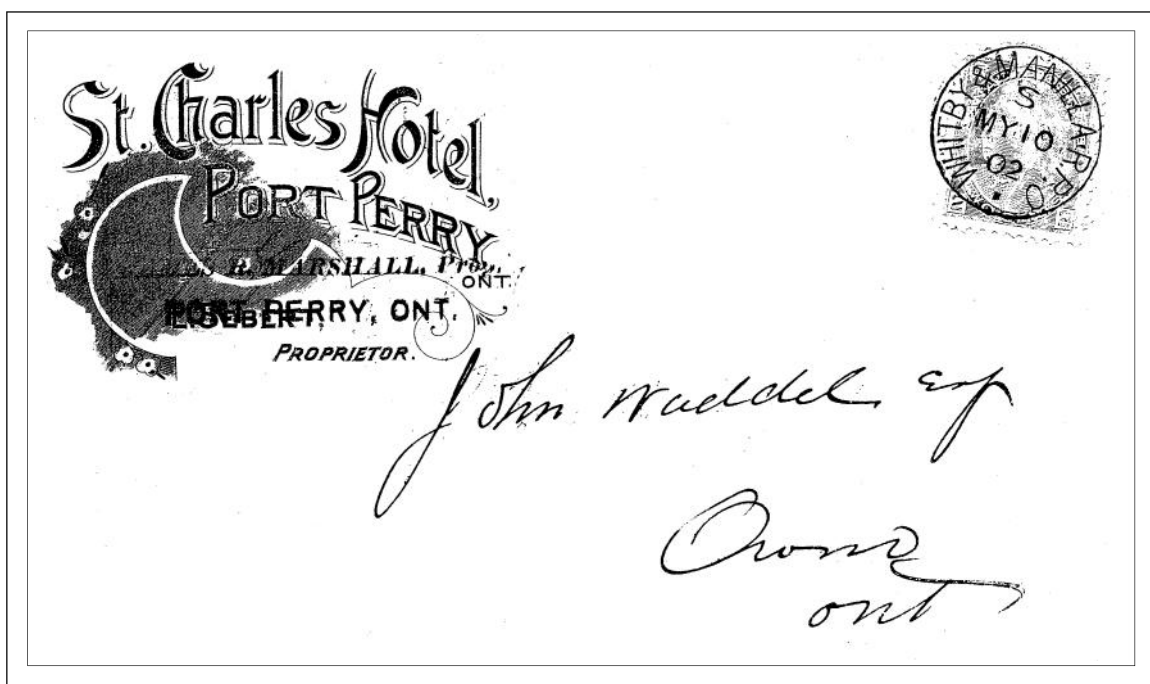 St. Charles Hotel,
PORT PERRY
R. MARSHALL, Prop.
ONT.
PORT PERRY, ONT.
PROPRIETOR.
WHITBY & MANILLA R.P.O.
S
MY 10
02
John Waddel, Esq
Orono
ont